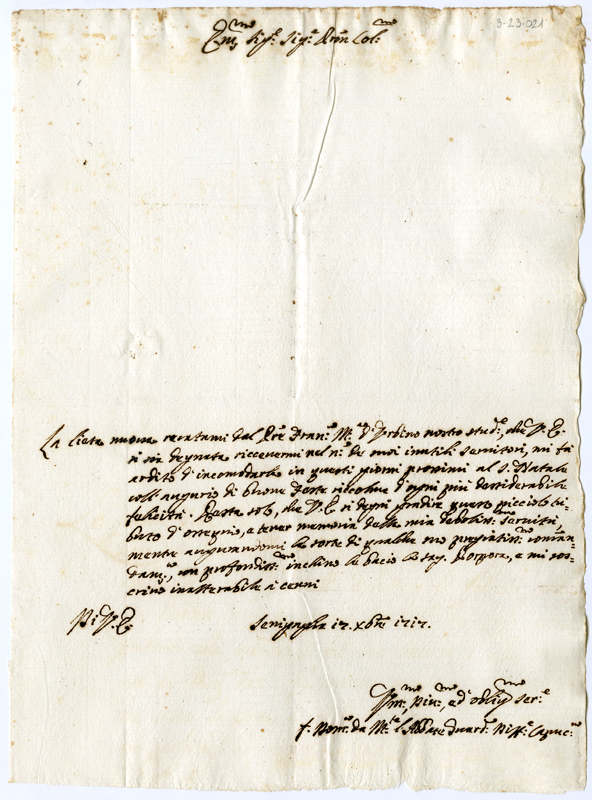 3-23-021
Em.mo Sig.r Sig.r Pron Col.mo
La lieta nuova recatami dal Pre Fran.co M.a d'Urbino nostro stud.e, che V. E.
si sia degnata riccevermi nel n.o de suoi inutili servitori, mi fa
ardito d'incomodarla in questi giorni prossimi al S. Natale
coll'augurio di buone Feste riccolme d'ogni più desiderabile
felicità. Resta solo, che V. E. si degni gradire questo picciolo
d'ossequio, e tener memoria della mia debolis.ma servitù,
mentre augurandomi la sorte di qualche suo pregiatis.mo coman-
dam.to, con profondis.mo inchino le bacio la sag. Porpora, e mi sos-
crivo inalterabile a cenni
Di V. E.
Senigaglia 17. Xbre 1717.
Um.mo, Div.mo, ed Oblig.mo Ser.e
f. da M.te l'Abbate Guard. Capuc.no